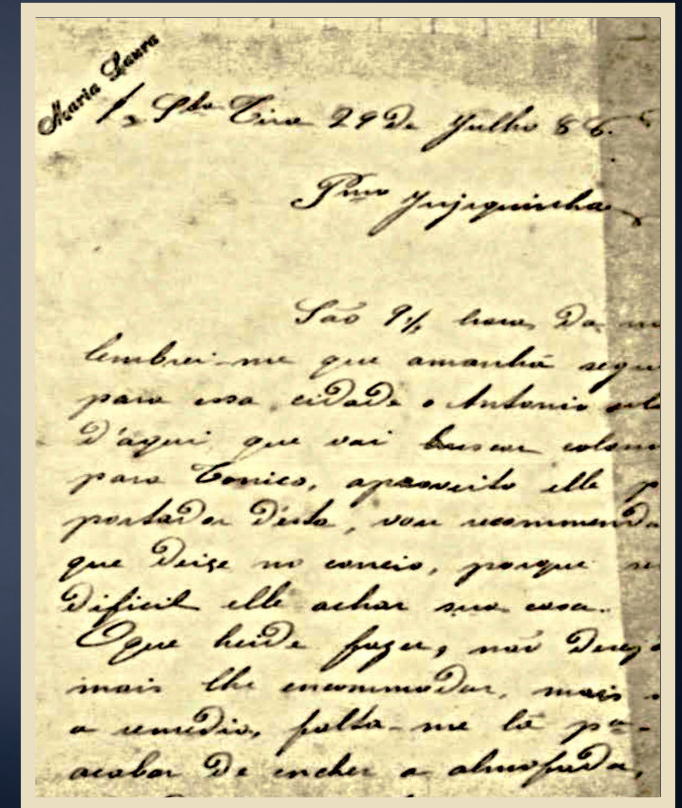 Maria Laura
Sta 29 de Julho 86.
Pmo Jujuquinha
São 9½ horas da
lembrei-me que amanhã
para essa cidade o Antonio
d'aqui, que vai buscar
para Tonico, aproveito elle
portador désta, vou
que deixe no correio, porque
dificil elle achar sua casa.
O que heide fazer, não
mais lhe encommodar, mais
o remedio, falta-me lã pa-
acabar de encher a almofada,